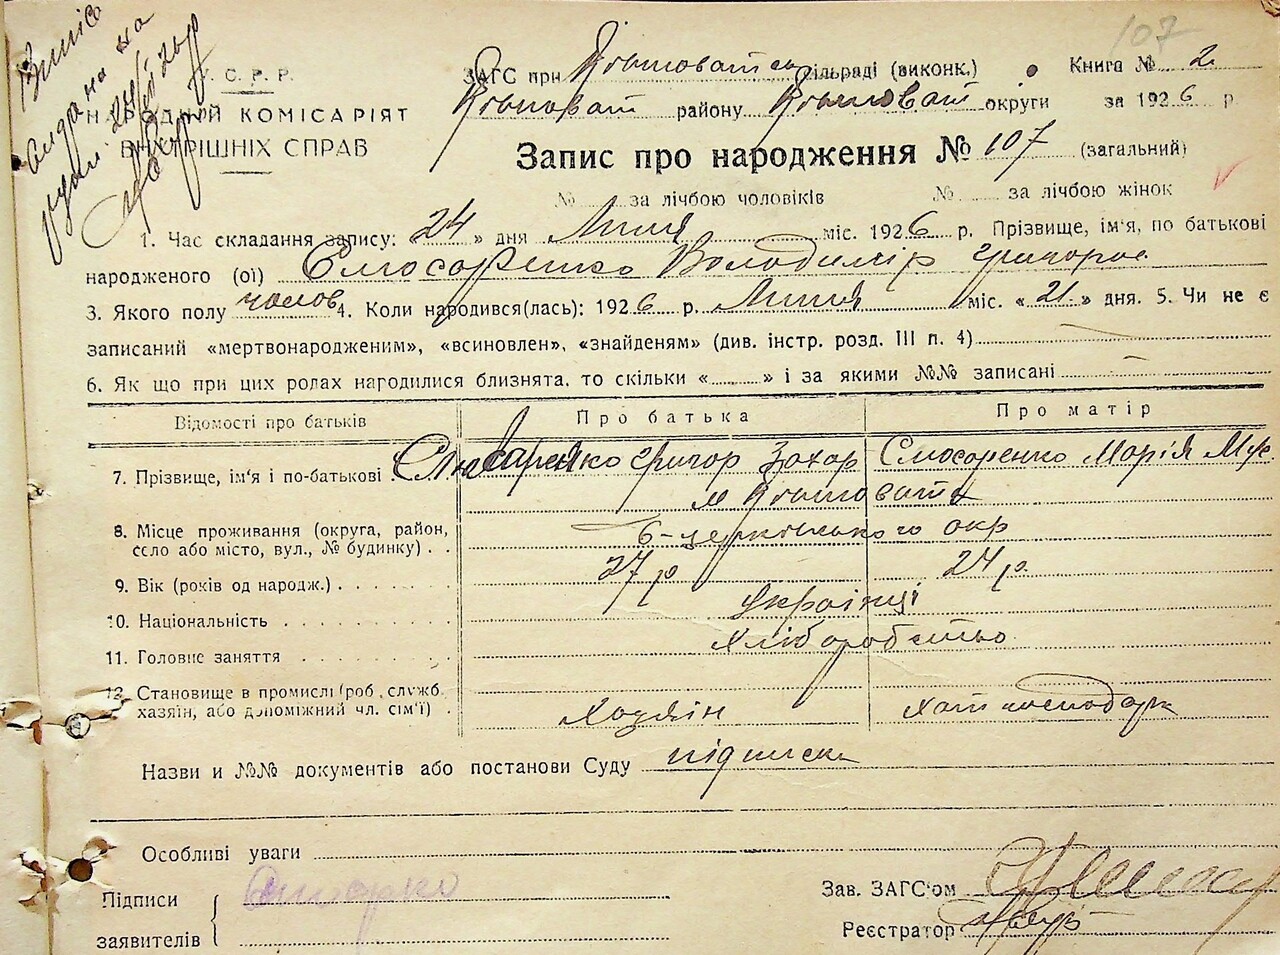 107
У. С. Р. Р.
НАРОДНІЙ КОМІСАРІЯТ
ВНУТРІШНІХ СПРАВ
ЗАГС при сільраді (виконк.) Книга № 2
району округи за 1926 р.
Запис про народження № 107 (загальний)
№ за лічбою чоловіків № за лічбою жінок
1. Час складання запису: 24 » дня Липня міс. 1926 р. Прізвище, ім'я, по батькові
народженого (ої) Слюсаренко Володимір Григоров
3. Якого полу чолов 4. Коли народився(лась): 1926 р. Липня міс. « 21 » дня. 5. Чи не є
записаний «мертвонародженим», «всиновлен», «знайденям» (див. інстр. розд. III п. 4)
6. Як що при цих ролах нагодилися близнята, то скільки « » і за якими №№ записані
Відомості про батьків Про батька Про матір
7. Прізвище, ім'я і по-батькові Слюсаренко Григор Захар Слюсаренко Марія Мус
8. Місце проживання (округа, район,
село або місто, вул., № будинку) . . Б-церковського окр
9. Вік (років од народж.) . . . . . 27 р 24 р.
10. Національність . . . . . . . . українці
11. Головне заняття . . . . . . . хліборобство
12. Становище в промислі (роб., служб.
хазяїн, або допоміжний чл. сім'ї) . Хазяїн Хат господарк
Назви и №№ документів або постанови Суду підписка
Особливі уваги
Підписи
заявителів
Зав. ЗАГС'ом
Реєстратор